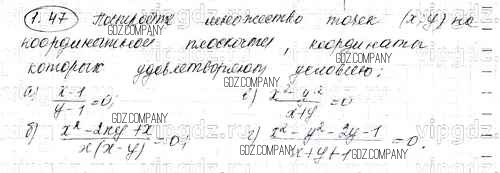 1.47 Попробуйте множество точек (x;y) на
координатной плоскости, координаты
которых удовлетворяют условию:
а) x-1/y-1=0; в) x²-y²/x+y=0
б) x²-2xy+x/x(x-y)=0; г) x²-y²-2y-1/x+y+1=0.
GDZ.COMPANY
GDZ.COMPANY
GDZ.COMPANY
GDZ.COMPANY
GDZ.COMPANY
GDZ.COMPANY
vipgdz.ru